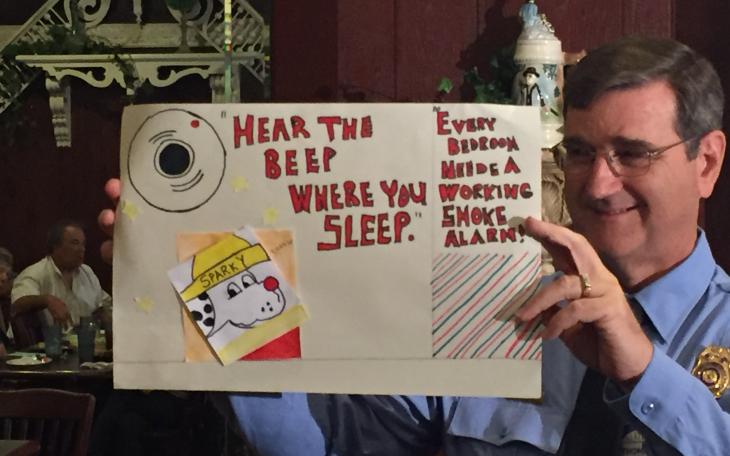 "HEAR THE
BEEP
WHERE YOU
SLEEP."
"EVERY
BEDROOM
NEEDS A
WORKING
SMOKE
ALARM!
SPARKY